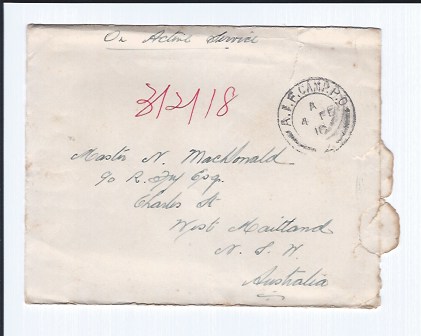 On Active Service
3/2/18
A.I.F. CAMP P.O
A
4 FE
18
Master N. MacDonald
R. Esq.
Charles St
West Maitland
N. S. W.
Australia